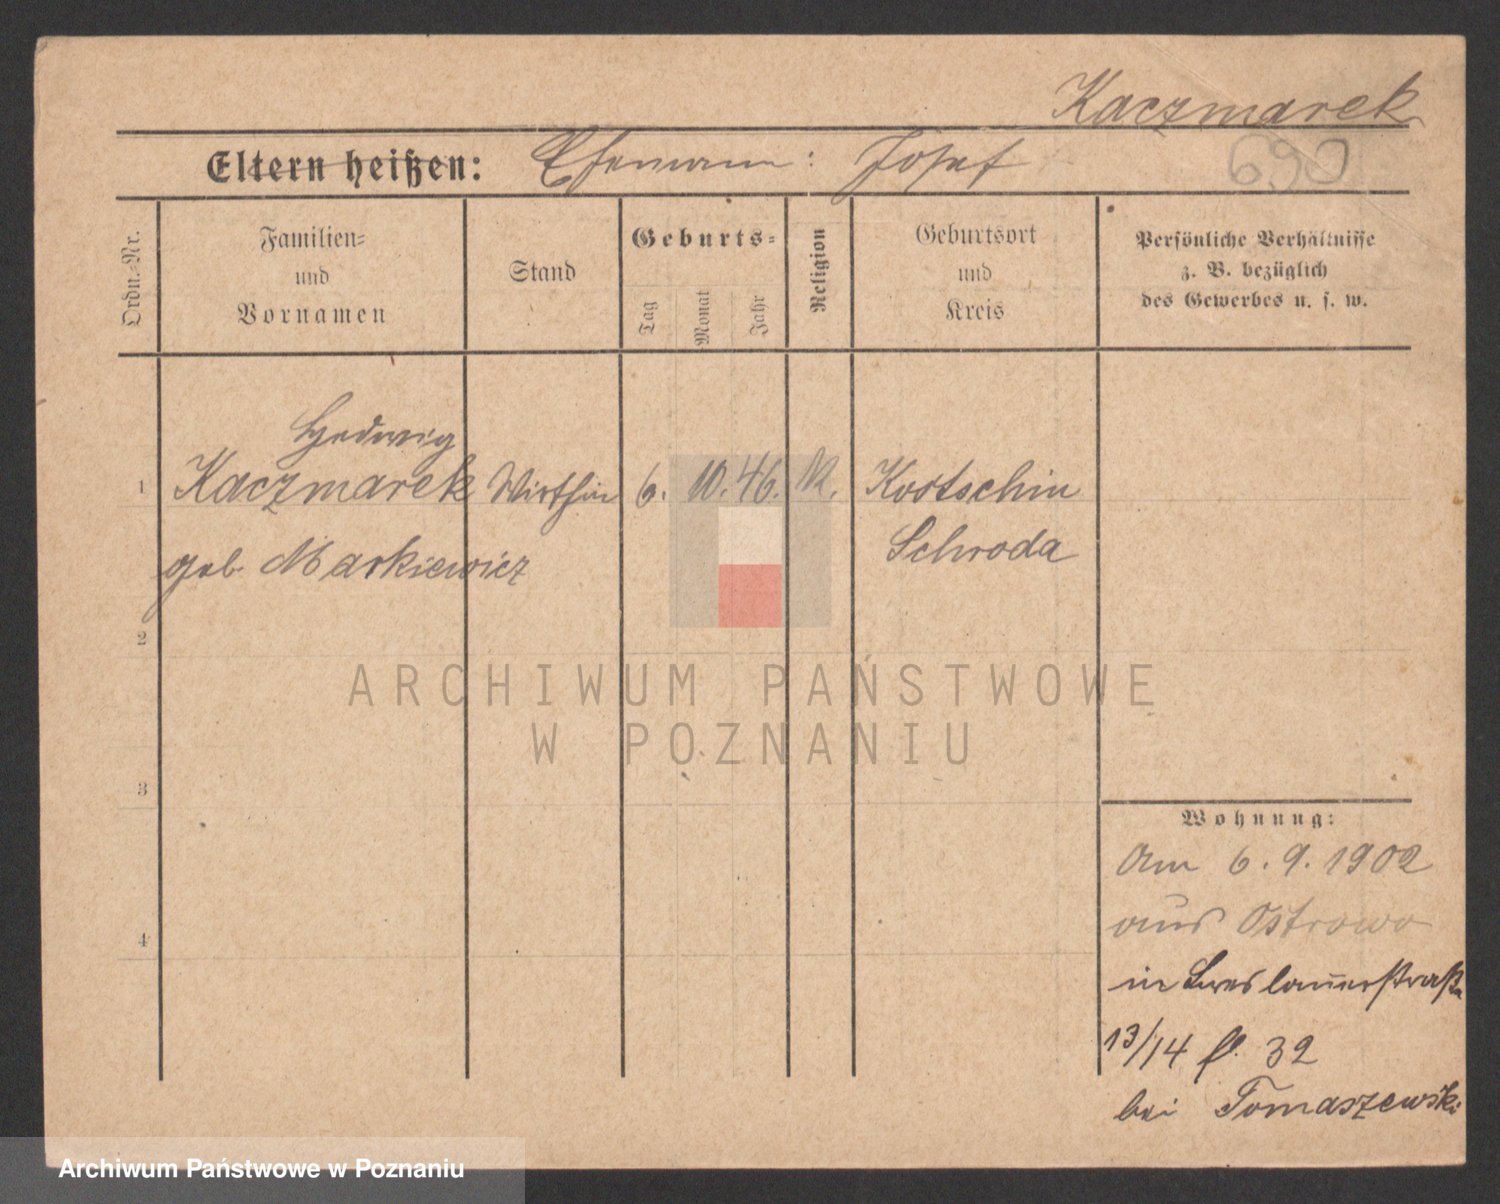 Kaczmarek
Eltern heißen: Ehemann: Josef
690
Ordn.-Nr.
Familien-
und
Vornamen
Stand
Geburts-
Tag
Monat
Jahr
Religion
Geburtsort
und
Kreis
Persönliche Verhältnisse
z. B. bezüglich
des Gewerbes u. s. w.
Hedwig
1 Kaczmarek Wirthin 6. 10. 46. Kostschin
geb. Markiewicz Schroda
2
ARCHIWUM PAŃSTWOWE
W POZNANIU
3
Wohnung:
Am 6. 9. 1902
aus Ostrowo
4
in Breslauerstraße
13/14 32
bei Tomaszewski
Archiwum Państwowe w Poznaniu